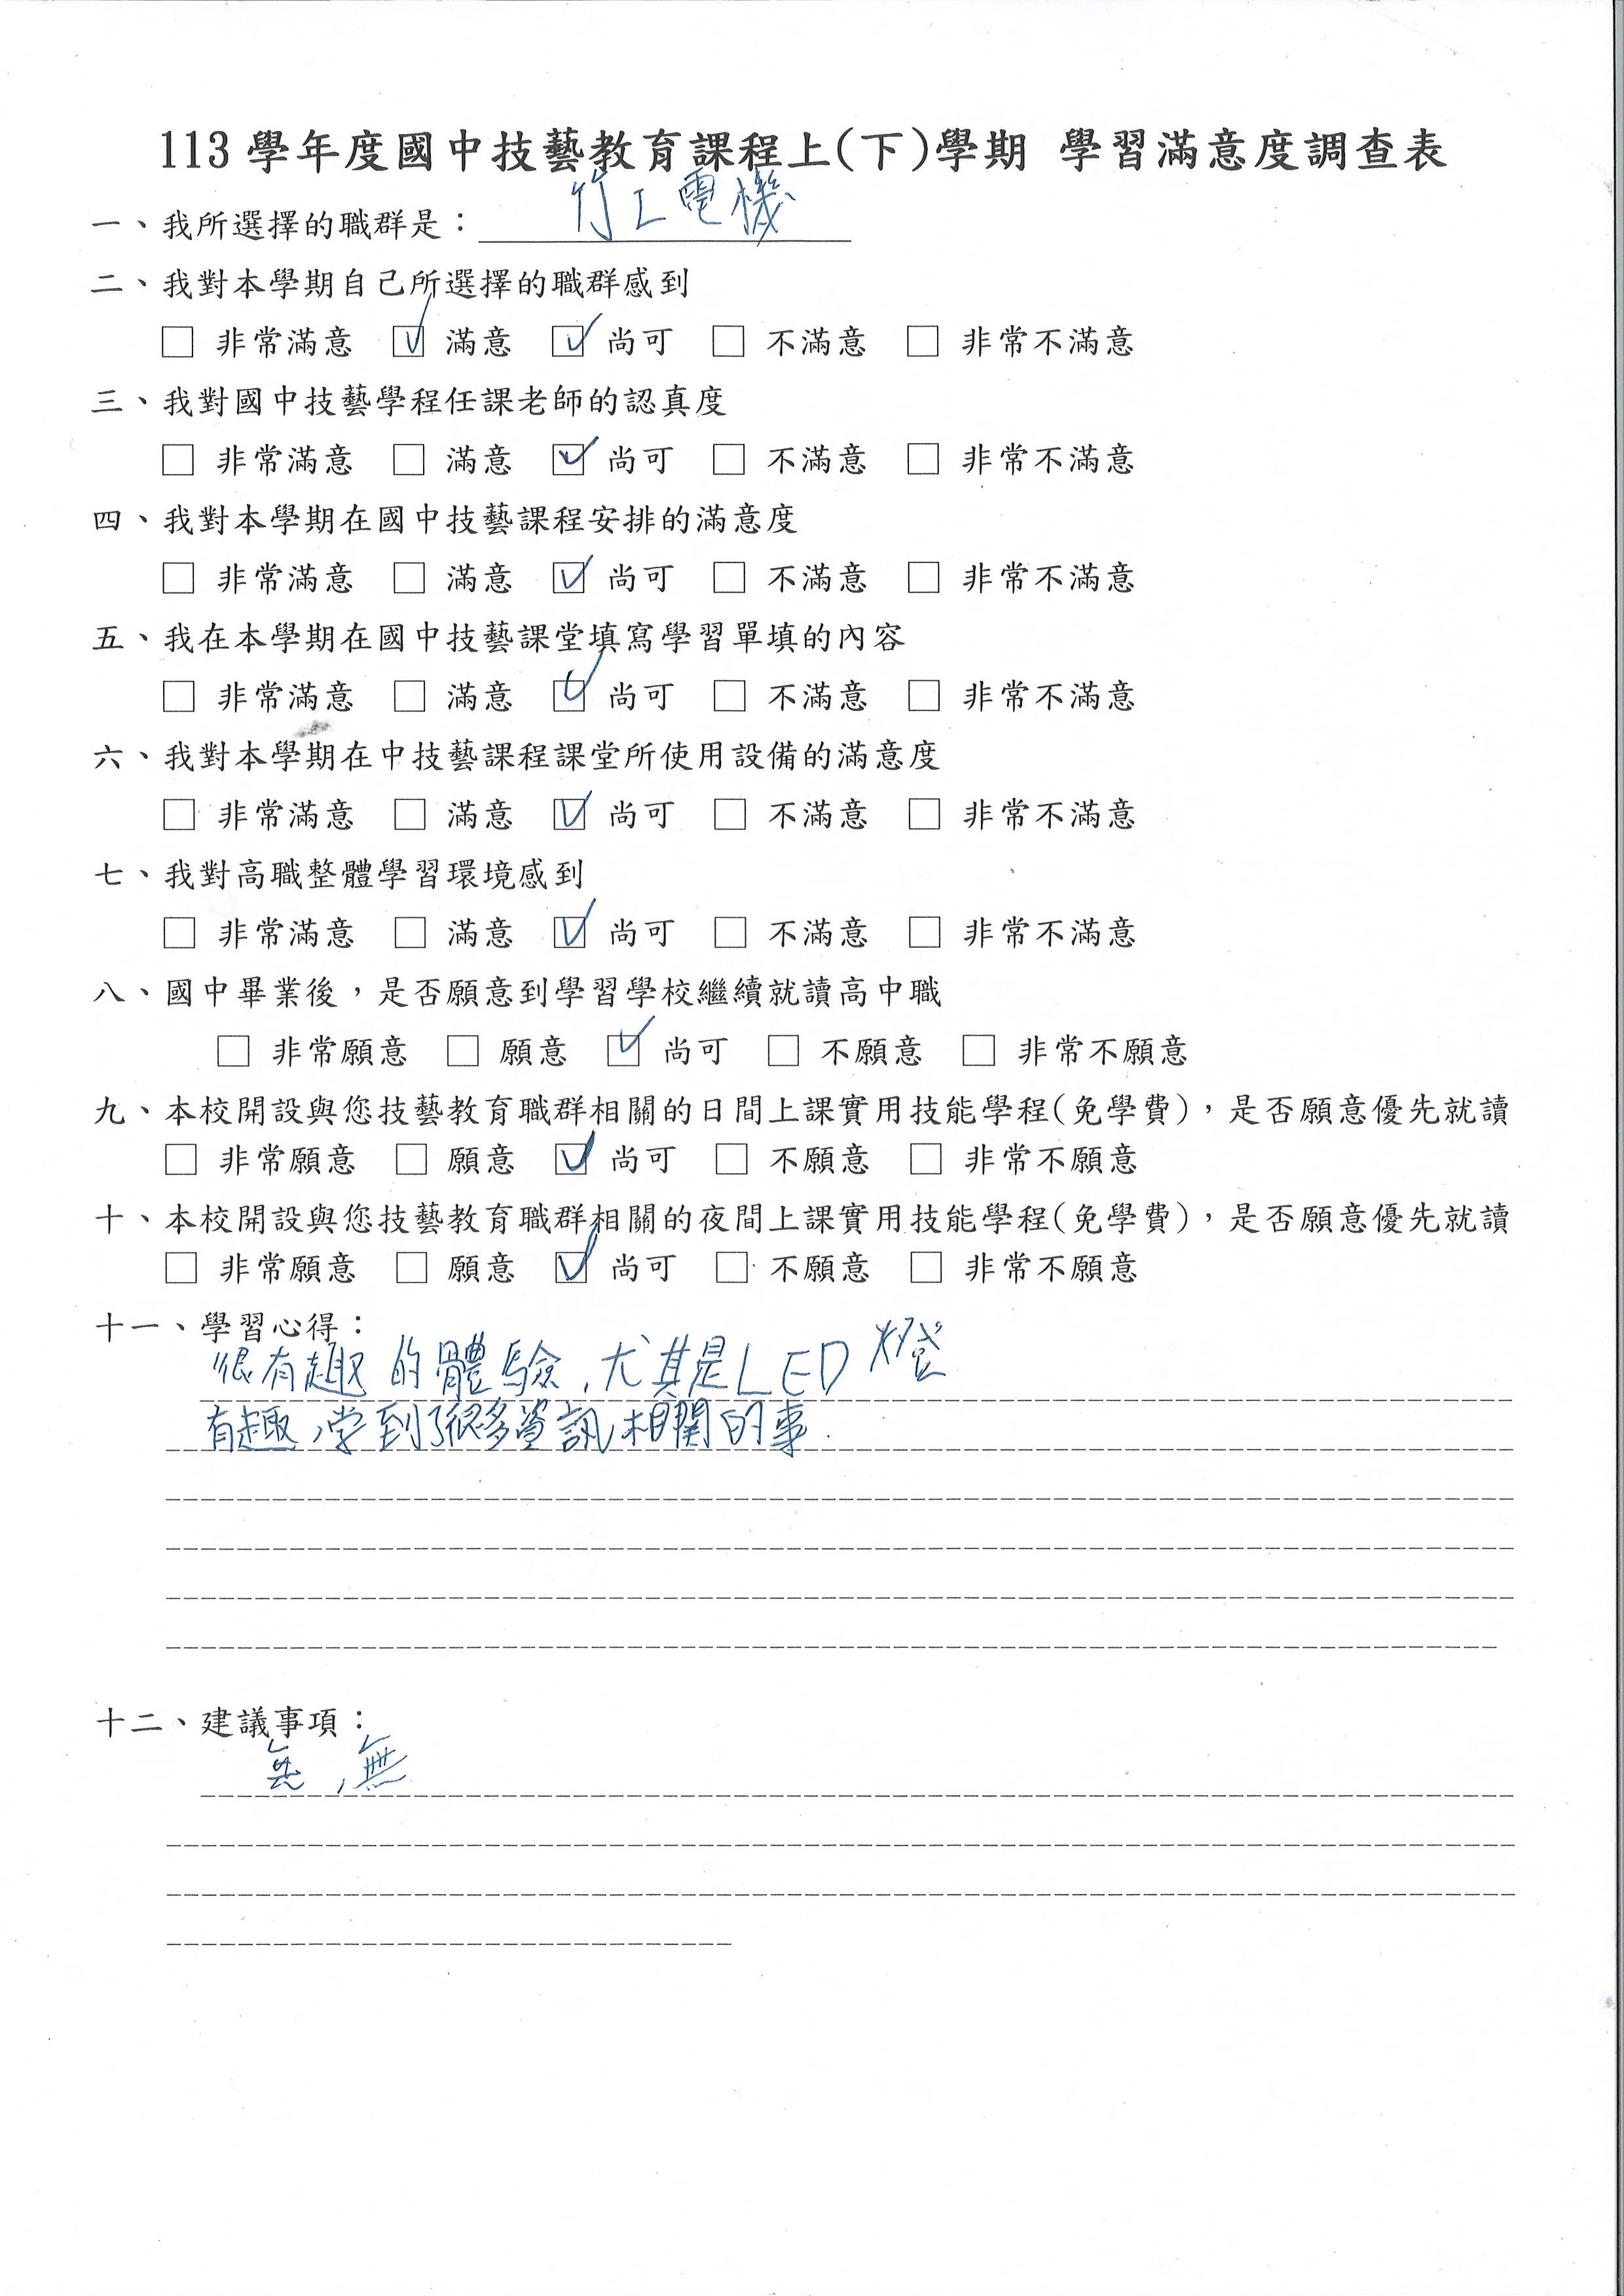 113學年度國中技藝教育課程上(下)學期 學習滿意度調查表
一、我所選擇的職群是：竹工電機
二、我對本學期自己所選擇的職群感到
□ 非常滿意 ☑ 滿意 ☑ 尚可 □ 不滿意 □ 非常不滿意
三、我對國中技藝學程任課老師的認真度
□ 非常滿意 □ 滿意 ☑ 尚可 □ 不滿意 □ 非常不滿意
四、我對本學期在國中技藝課程安排的滿意度
□ 非常滿意 □ 滿意 ☑ 尚可 □ 不滿意 □ 非常不滿意
五、我在本學期在國中技藝課堂填寫學習單填的內容
□ 非常滿意 □ 滿意 ☑ 尚可 □ 不滿意 □ 非常不滿意
六、我對本學期在中技藝課程課堂所使用設備的滿意度
□ 非常滿意 □ 滿意 ☑ 尚可 □ 不滿意 □ 非常不滿意
七、我對高職整體學習環境感到
□ 非常滿意 □ 滿意 ☑ 尚可 □ 不滿意 □ 非常不滿意
八、國中畢業後，是否願意到學習學校繼續就讀高中職
□ 非常願意 □ 願意 ☑ 尚可 □ 不願意 □ 非常不願意
九、本校開設與您技藝教育職群相關的日間上課實用技能學程(免學費)，是否願意優先就讀
□ 非常願意 □ 願意 ☑ 尚可 □ 不願意 □ 非常不願意
十、本校開設與您技藝教育職群相關的夜間上課實用技能學程(免學費)，是否願意優先就讀
□ 非常願意 □ 願意 ☑ 尚可 □ 不願意 □ 非常不願意
十一、學習心得：
很有趣的體驗，尤其是LED燈
有趣，学到了很多資訊相關的事.
十二、建議事項：
，無